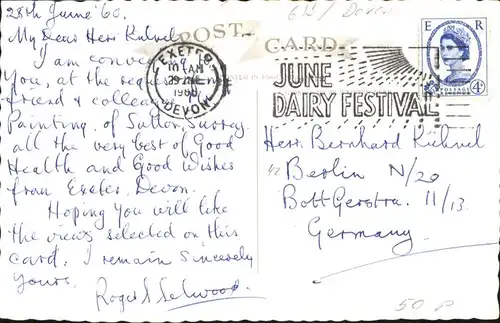 28th June '66.
My Dear Herr Kühvel
I am conveying
you, at the request
friend & colleag
Painting, of Sutton, Surrey,
all the very best of Good
Health and Good Wishes
from Exeter, Devon.
Hoping you will like
the views selected on this
card. I remain Sincerely
Yours.
Roger S Selwood.
POST
CARD
EXETER
AM
DEVON
JUNE
DAIRY FESTIVAL
E R
POSTAGE
4D
Herr. Bernhard Kühvel
Berlin N/20
Bottgerstra. 11/13
Germany.
50 P